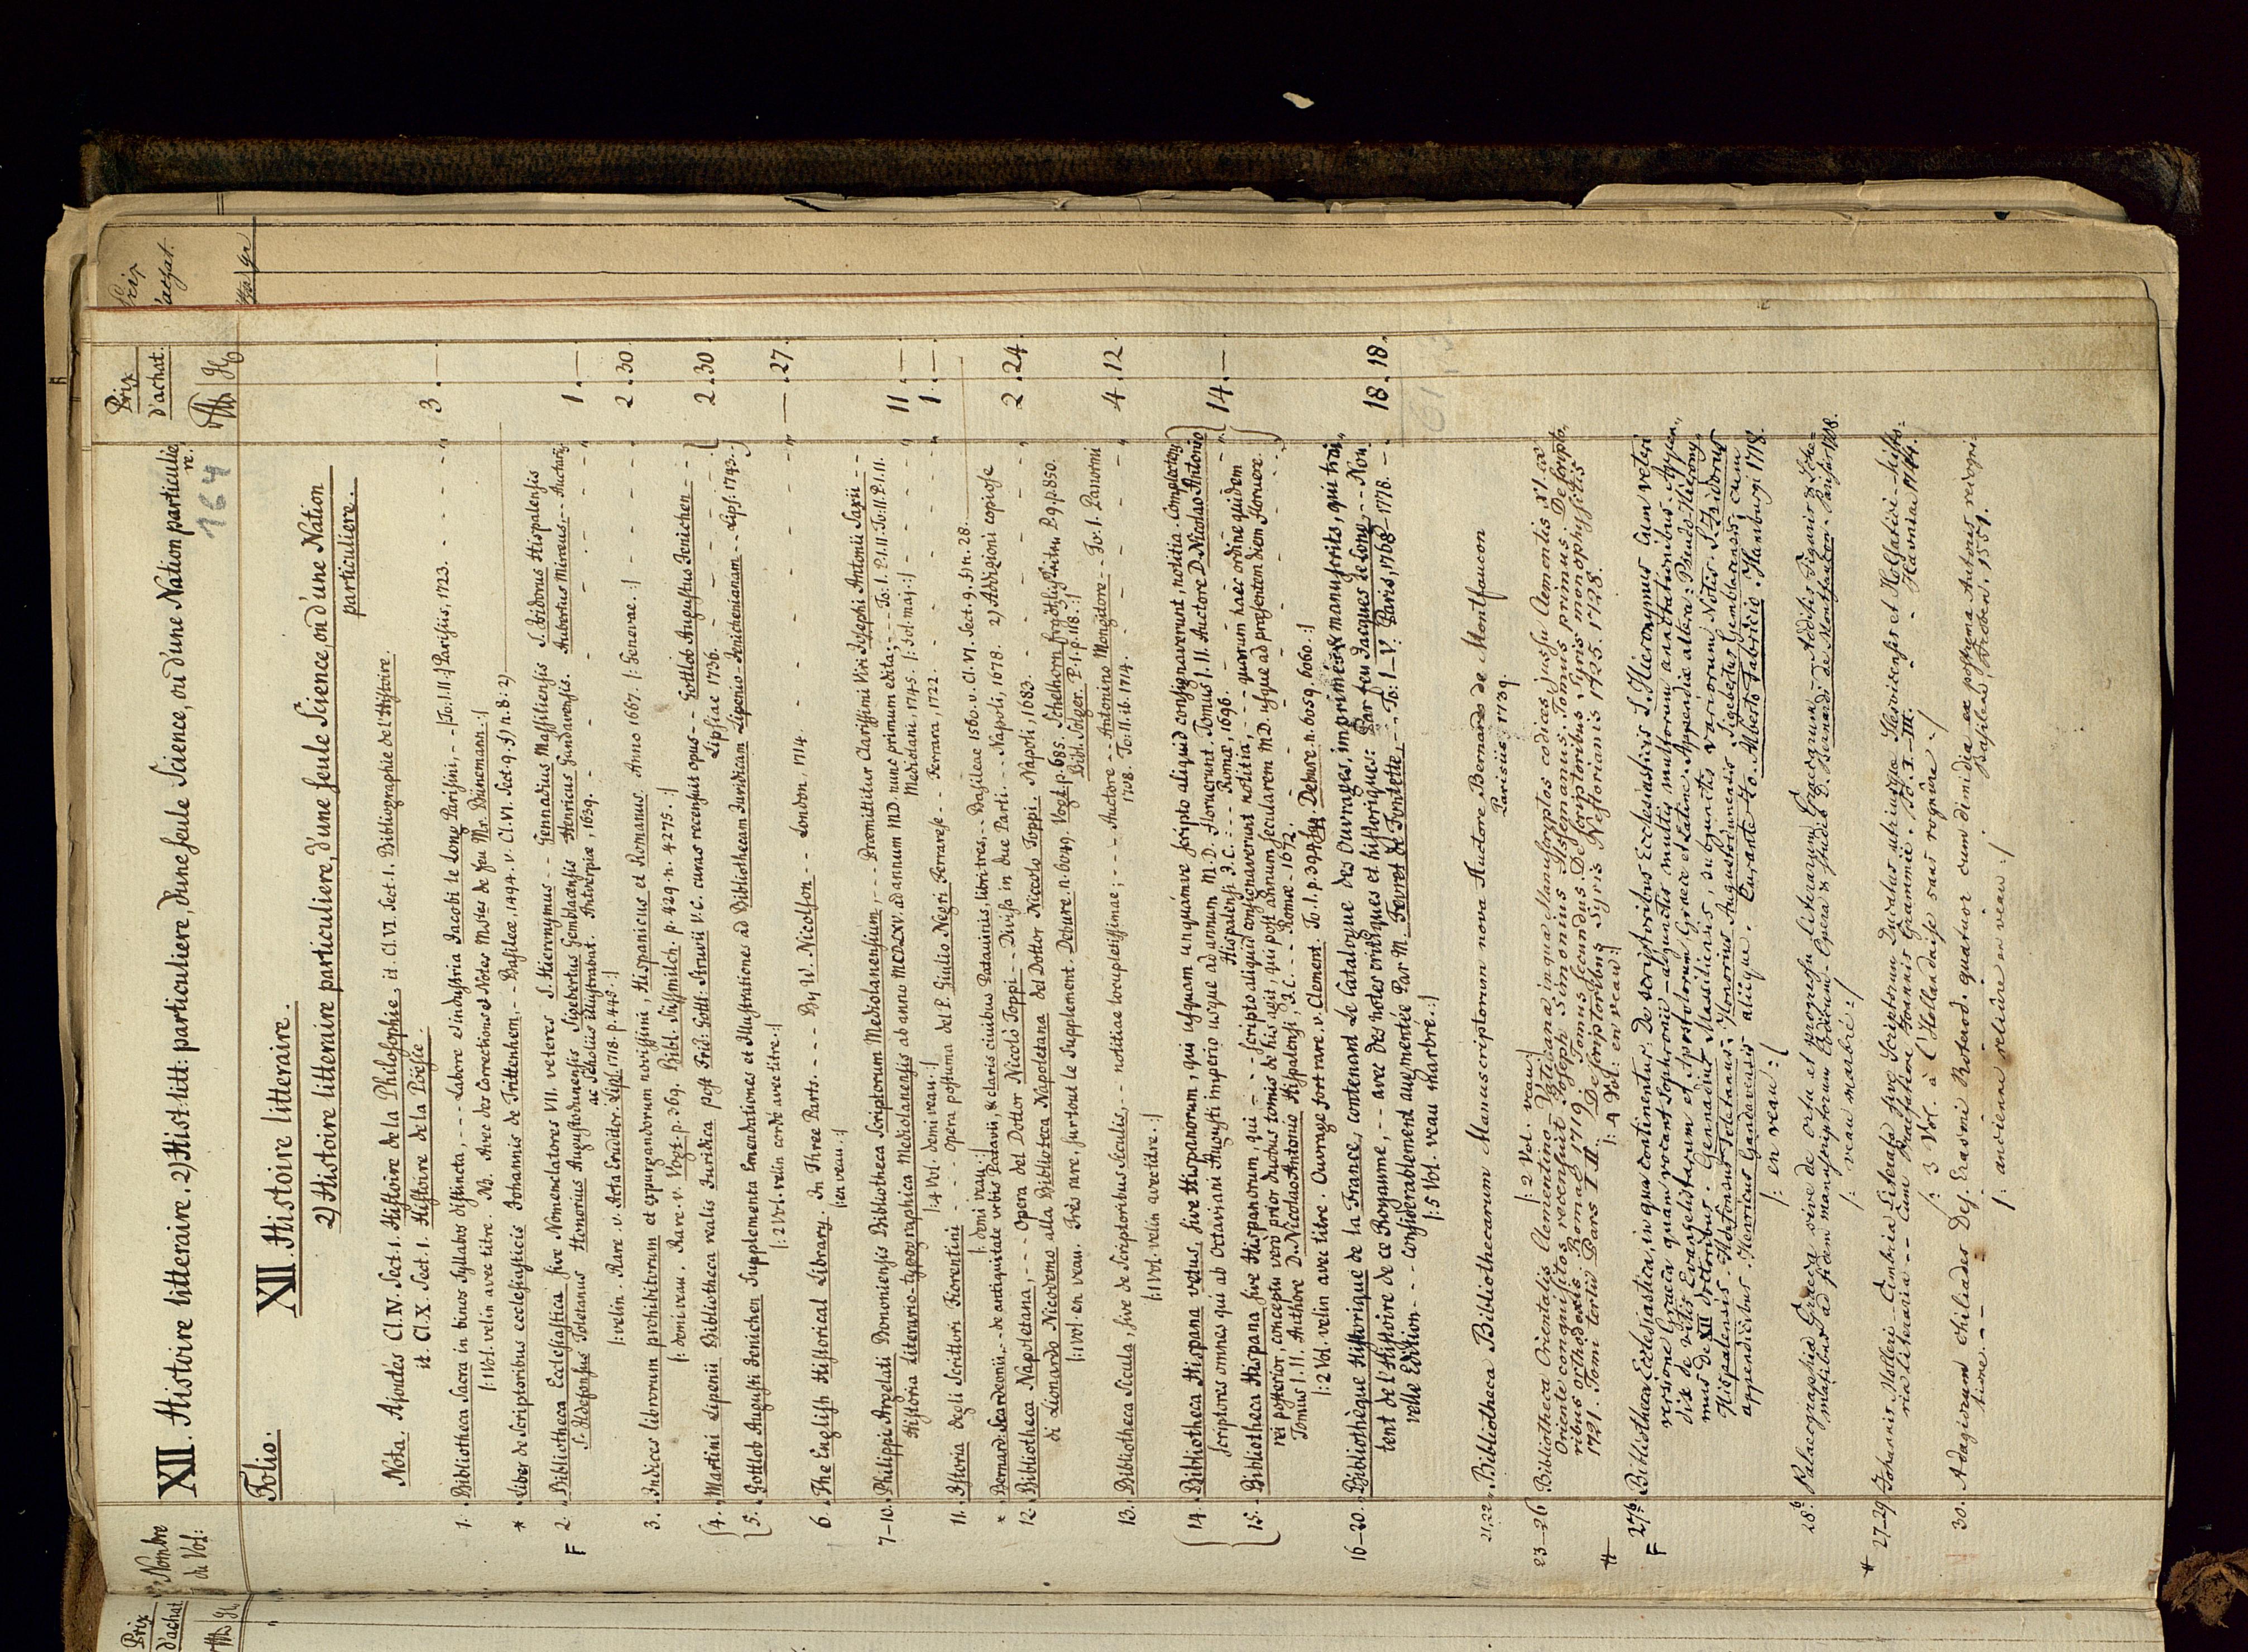 XII. Histoire litteraire. 2) Hist: litt: particuliere, d'une seule Science, ou d'une Nation particulie,
re.
164
Nombre
du Vol:
Prix
d'achat.
Folio.
XII. Histoire litteraire.
2) Histoire litteraire particuliere, d'une seule Science, ou d'une Nation
particuliere.
Nota. Ajoutés Cl. IV. Sect. 1. Histoire de la Philosophie. it. Cl. VI. Sect. 1. Bibliographie de l'Histoire.
it. Cl. X. Sect. 1. Histoire de la Poësie.
1. Bibliotheca Sacra in binos Syllabos distincta, --- Labore et industria Jacobi le Long Parisini, -- /To: I. II./ Parisiis, 1723. - - - " 3. —
/: 1 Vol. velin avec titre. NB. Avec des Corrections et Notes Mstes de feu Mr. Bünemann :/
* Liber de Scriptoribus ecclesiasticis Johannis de Trittenhem. -- Basileæ, 1494. v. Cl. VI. Sect. 9. §) n. 8: 2)
F 2. Bibliotheca Ecclesiastica sive Nomenclatores VII. veteres S. Hieronymus -- Gennadius Massiliensis S. Isidorus Hispalensis
S. Ildefonsus Toletanus Honorius Augustodunensis Sigebertus Gemblacensis Henricus Gandavensis. Aubertus Miraeus -- Auctarijs
ac Scholiis illustrabat. Antverpiæ, 1639. - - - " 1. —
/: velin. Rare. v. Acta Eruditor. Lips. 1718. p. 445. :/
3. Indices librorum prohibitorum et expurgandorum novissimi, Hispanicus et Romanus. Anno 1667. /: Genevae. :/ - - - 2. 30
/: demi veau. Rare. v. Vogt. p. 369. Bibl. Süssmilch. p. 429. n. 4275. :/
4. Martini Lipenii Bibliotheca realis Juridica post Frid: Gottl: Struvii V. C. curas recensuit opus -- Gottlob Augustus Jenichen --
Lipsiae 1736. - - - 2. 30
5. Gottlob Augusti Jenichen Supplementa Emendationes et Illustrationes ad Bibliothecam Juridicam Lipenio-Jenichenianam -- Lips: 1743.
/: 2 Vol. velin cordé avec titre :/
6. The English Historical Library. In Three Parts. ---- By W. Nicolson -- London, 1714. - - - " —. 27.
/: en veau :/
7-10. Philippi Argelati Bononiensis Bibliotheca Scriptorum Mediolanensium, --- Præmittitur Clarissimi Viri Josephi Antonii Saxii --
Historia Literario-typographica Mediolanensis ab anno MCDLXV. ad annum MD. nunc primum edita; --- To: I. P. I. II. To: II. P. I. II.
Mediolani, 1745. /: fol: maj: :/ - - - " 11. —
/: 4 Vol. demi veau. :/
11. Istoria degli Scrittori Fiorentini -- - Opera postuma del P. Giulio Negri Ferrarese -- Ferrara, 1722. - - - " 1. —
/: demi veau :/
* Bernard. Scardeonii -- de antiquitate urbis Patavii, & claris civibus Patavinis, libri tres, -- Basileae 1560. v. Cl. VI. Sect. 9. §) n. 28.
12. Bibliotheca Napoletana, --- Opera del Dottor Nicolò Toppi -- Divisa in due Parti --- Napoli, 1678. 2) Addizioni copiose
di Lionardo Nicodemo alla Biblioteca Napoletana del Dottor Niccolò Toppi. Napoli, 1683. - - - 2. 24
/: 1 Vol. en veau. Très rare, surtout le Supplement. Debure. n. 6049. Vogt. p. 685. Schelhorn. P. 9. p. 850.
Bibl. Solger. P. I. p. 118. :/
13. Bibliotheca Sicula, sive de Scriptoribus Siculis, -- notitiae locupletissimae; --- Auctore -- Antonino Mongitore -- To: I. Panormi
1708. To: II. ib. 1714. - - - " 4. 12
/: 1 Vol. velin avec titre. :/
14. Bibliotheca Hispana vetus, sive Hispanorum, qui usquam unquamve scripto aliquid consignaverunt, notitia. Complectens
Scriptores omnes qui ab Octaviani Augusti imperio usque ad annum M. D. floruerunt. Tomus I. II. Auctore D. Nicolao Antonio
Hispalensi J. C. --- Romæ, 1696.
15. Bibliotheca Hispana sive Hispanorum, qui --- scripto aliquid consignaverunt notitia, -- quorum haec ordine quidem
rei posterior, conceptu vero prior duobus tomis de his agit, qui post annum secularem MD. usque ad præsentem diem floruere.
Tomus I. II. Authore D. Nicolao Antonio Hispalensi, J. C. --- Romæ - 1672. - - - 14. —
/: 2 Vol. velin avec titre. Ouvrage fort rare, v. Clement. To. I. p. 394. Debure. n. 6059. 6060. :/
16-20. Bibliothèque Historique de la France, contenant Le Catalogue des Ouvrages, imprimés & manuscrits, qui trai,
tent de l'Histoire de ce Royaume, -- avec Des Notes critiques et historiques: Par feu Jacques le Long, -- Nou,
velle Edition --- considerablement augmentée Par M. Fevret de Fontette, -- To: I-V. Paris, 1768-1778. - 18. 18.
/: 5 Vol. veau marbré. :/
21, 22. Bibliotheca Bibliothecarum Manuscriptorum nova Auctore Bernardo de Montfaucon
Parisiis 1739.
/: 2 Vol. veau :/
23-26 Bibliotheca Orientalis Clementino-Vaticana, in qua Manuscriptos codices jussu Clementis XI. ex
Oriente conquisitos recensuit Joseph Simonius Assemanus. Tomus primus. De scripto,
ribus orthodoxis. Romae 1719. Tomus secundus. De scriptoribus Syris monophysitis
1721. Tomi tertii Pars I. II. De scriptoribus Syris Nestorianis 1725. 1728.
/: 4 Vol. en veau :/
F 27b Bibliotheca Ecclesiastica, in qua continentur. De scriptoribus Ecclesiasticis S. Hieronymus cum veteri
versione Graeca quam vocant Sophronii - adjunctis multis multorum annotationibus. Appen,
dix de vitis Evangelistarum et Apostolorum Graece et Latine. Appendix altera: Pseudo-Hierony,
mus de XII Doctoribus. Gennadius Massiliensis, adjunctis variorum Notis. S. Isidorus
Hispalensis. Ildefonsus Toletanus. Honorius Augustodunensis. Sigebertus Gemblacensis, cum
appendicibus. Henricus Gandavensis aliique. Curante Jo. Alberto Fabricio. Hamburgi 1718.
/: en veau :/
28b. Palaeographia Graeca sive de ortu et progressu literarum Graecarum -- Additis Figuris & Sche-
matibus ad fidem manuscriptorum Codicum. Opera & studio D. Bernardi de Montfaucon. Parisiis 1708.
/: veau marbré :/
27-29 Johannis Molleri -- Cimbria Literata sive Scriptorum Ducatus utriusque Slesvicensis et Holsatici -- histo-
ria literaria -- Cum Praefatione Joannis Grammii. To. I-III. - - Havniae 1744.
/: 3 Vol. à l'Hollandaise sans rognure :/
30. Adagiorum chiliades Des. Erasmi Roterod. quatuor cum dimidia ex postrema Autoris recogni-
tione. -- - Basileae, Froben. 1551.
/: ancienne reliûre en veau :/